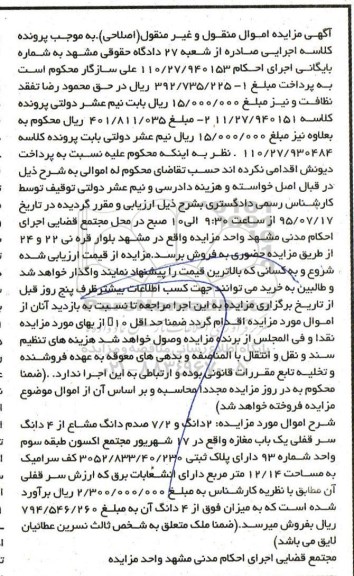 آگهی مزایده اموال منقول و غیر منقول(اصلاحی).به موجب پرونده
کلاسه اجرایی صادره از شعبه ۲۷ دادگاه حقوقی مشهد به شماره
بایگانی اجرای احکام ۱۱۰/۲۷/۹۴۰۱۵۳ علی سازگار محکوم است
به پرداخت مبلغ ۱- ۳۹۲/۷۳۵/۲۲۵ ریال در حق محمود رضا تفقد
نظافت و نیز مبلغ ۱۵/۰۰۰/۰۰۰ ریال بابت نیم عشر دولتی پرونده
کلاسه ۱۱/۲۷/۹۴۰۱۵۱ ۲- مبلغ ۴۰۱/۸۱۱/۰۳۵ ریال محکوم به
بعلاوه نیز مبلغ ۱۵/۰۰۰/۰۰۰ ریال نیم عشر دولتی بابت پرونده کلاسه
۱۱۰/۲۷/۹۳۰۴۸۴ . نظر به اینکه محکوم علیه نسبت به پرداخت
دیونش اقدامی نکرده اند حسب تقاضای محکوم له اموالی به شرح ذیل
در قبال اصل خواسته و هزینه دادرسی و نیم عشر دولتی توقیف توسط
کارشناس رسمی دادگستری بشرح ذیل ارزیابی و مقرر گردیده در تاریخ
۹۵/۰۷/۱۷ از ساعت ۹:۳۰ الی۱۰ صبح در محل مجتمع قضایی اجرای
احکام مدنی مشهد واحد مزایده واقع در مشهد بلوار قره نی ۲۲ و ۲۴
از طریق مزایده حضوری به فروش برسد.مزایده از قیمت ارزیابی شده
شروع و به کسانی که بالاترین قیمت را پیشنهاد نمایند واگذار خواهد شد
و طالبین به خرید می توانند جهت کسب اطلاعات بیشترظرف پنج روز قبل
از تاریخ برگزاری مزایده به این اجرا مراجعه تا نسبت به بازدید آنان از
اموال مورد مزایده اقدام گردد ضمنا حد اقل ۱۰٪ از بهای مورد مزایده
نقدا و فی المجلس از برنده مزایده وصول خواهد شد هزینه های تنظیم
سند و نقل و انتقال با المناصفه و بدهی های معوقه به عهده فروشنده
و تخلیه تابع مقررات قانونی بوده و ارتباطی به این اجرا ندارد. .(ضمنا
محکوم به در روز مزایده مجددا محاسبه و بر اساس آن از اموال موضوع
مزایده فروخته خواهد شد)
شرح اموال مورد مزایده: ۲دانگ و ۷/۲ صدم دانگ مشاع از ۴ دانگ
سر قفلی یک باب مغازه واقع در ۱۷ شهریور مجتمع اکسون طبقه سوم
واحد شماره ۹۳ دارای پلاک ثبتی ۳۰۵۲/۸۳۳/۴۰/۲۳۰ کف سرامیک
به مساحت ۱۲/۱۴ متر مربع دارای انشعابات برق که ارزش سر قفلی
آن مطابق با نظریه کارشناس به مبلغ ۲/۳۰۰/۰۰۰/۰۰۰ ریال برآورد
شده است که به میزان فوق از ۴ دانگ آن به مبلغ ۷۹۴/۵۴۶/۲۶۰
ریال بفروش میرسد.(ضمنا ملک متعلق به شخص ثالث نسرین عطائیان
لایق می باشد)
مجتمع قضایی اجرای احکام مدنی مشهد واحد مزایده